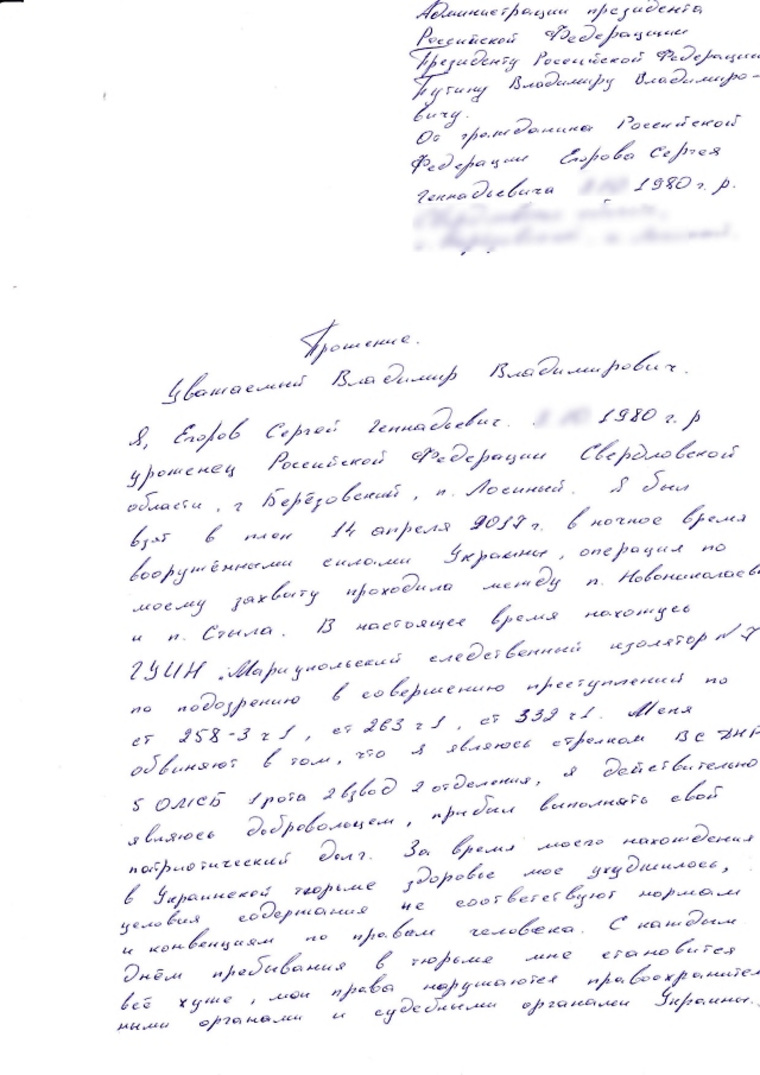 Администрации президента
Российской Федерации
Президенту Российской Федерации
Путину Владимиру Владимиро-
вичу.
От гражданина Российской
Федерации Егорова Сергея
Геннадьевича 1980 г. р.
Прошение.
Уважаемый Владимир Владимирович.
Я, Егоров Сергей Геннадьевич. 1980 г. р
уроженец Российской Федерации Свердловской
области, г Берёзовский, п. Лосиный. Я был
взят в плен 14 апреля 2017 г. в ночное время
вооружёнными силами Украины, операция по
моему захвату проходила между п. Новониколаевка
и п. Стыла. В настоящее время нахожусь
ГУИН "Мариупольский следственный изолятор № 7
по подозрению в совершению преступлений по
ст 258-3 ч 1, ст 263 ч 1, ст 332 ч 1. Меня
обвиняют в том, что я являюсь стрелком ВС ДНР
5 ОМСБ 1 рота 2 взвод 2 отделения, я действительно
являюсь добровольцем, прибыл выполнять свой
патриотический долг. За время моего нахождения
в Украинской тюрьме здоровье мое ухудшилось,
условия содержания не соответствуют нормам
и конвенциям по правам человека. С каждым
днём пребывания в тюрьме мне становится
всё хуже, мои права нарушаются правоохранитель
ными органами и судебными органами Украины.